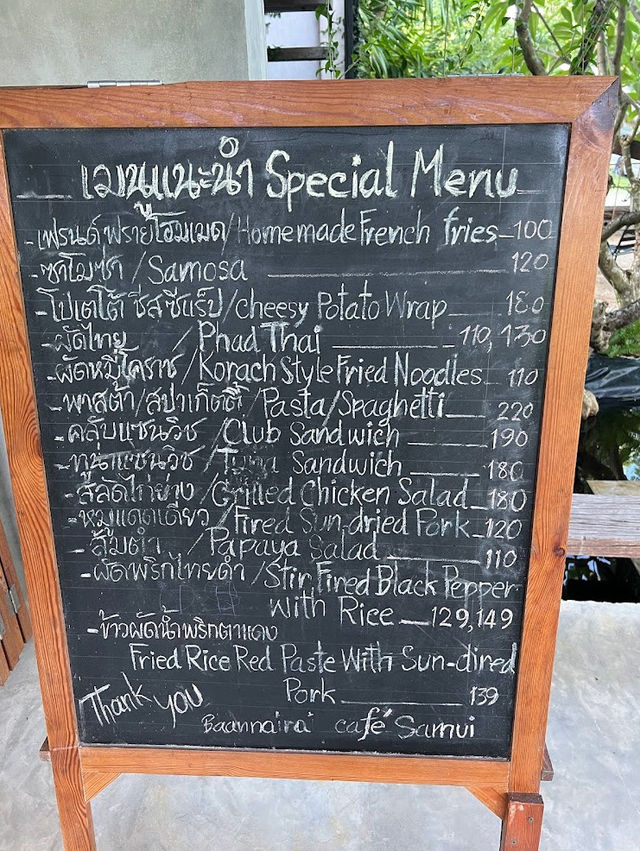 เมนูแนะนำ Special Menu
- เฟรนด์ฟรายโฮมเมด/Homemade French fries 100
- ซาโมซ่า / Samosa 120
- โปเตโต้ ชีสซีแร็ป/cheesy Potato Wrap 180
- ผัดไทย / Phad Thai 110, 130
- ผัดหมี่โคราช/Korach Style Fried Noodles 110
- พาสต้า/สปาเก็ตตี้/Pasta/Spaghetti 220
- คลับแซนวิช /Club Sandwich 190
- ทูน่าแซนวิช /Tuna Sandwich 180
- สลัดไก่ย่าง /Grilled Chicken Salad 180
- หมูแดดเดียว /Fired Sun-dried Pork 120
- ส้มตำ / Papaya Salad 110
- ผัดพริกไทยดำ /Stir Fired Black Pepper
With Rice 129,149
- ข้าวผัดน้ำพริกตาแดง
Fried Rice Red Paste With Sun-dired
Pork 139
Thank you
Baannaira café Samui